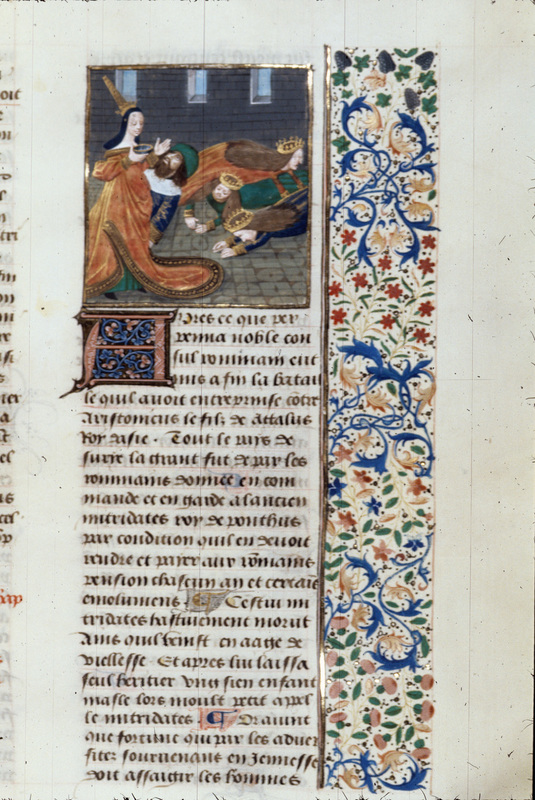 Apres ce que per
penna noble con
sul rommain eut
mis a fin la batail
le quil avoit entreprinse côtre
Aristomcus le filz de attalus
Roy dasie · Tout le pays de
surie la grant fut de par les
rommains donnee en com
mande et en garde a lancien
mitridates roy de ponthus
par condition quil en devoit
rendre et paier aux rômains
pension chascun an et certais
emolumens Cestui mi
tridates hastivement morut
Ains quil venist en aage de
viellesse · Et apres lui laissa
seul heritier ung sien enfant
masle lors moult petit appel
le mitridates Et avint
que fortune qui par les adver
sitez sourvenans en jennesse
doit assaigir les hommes